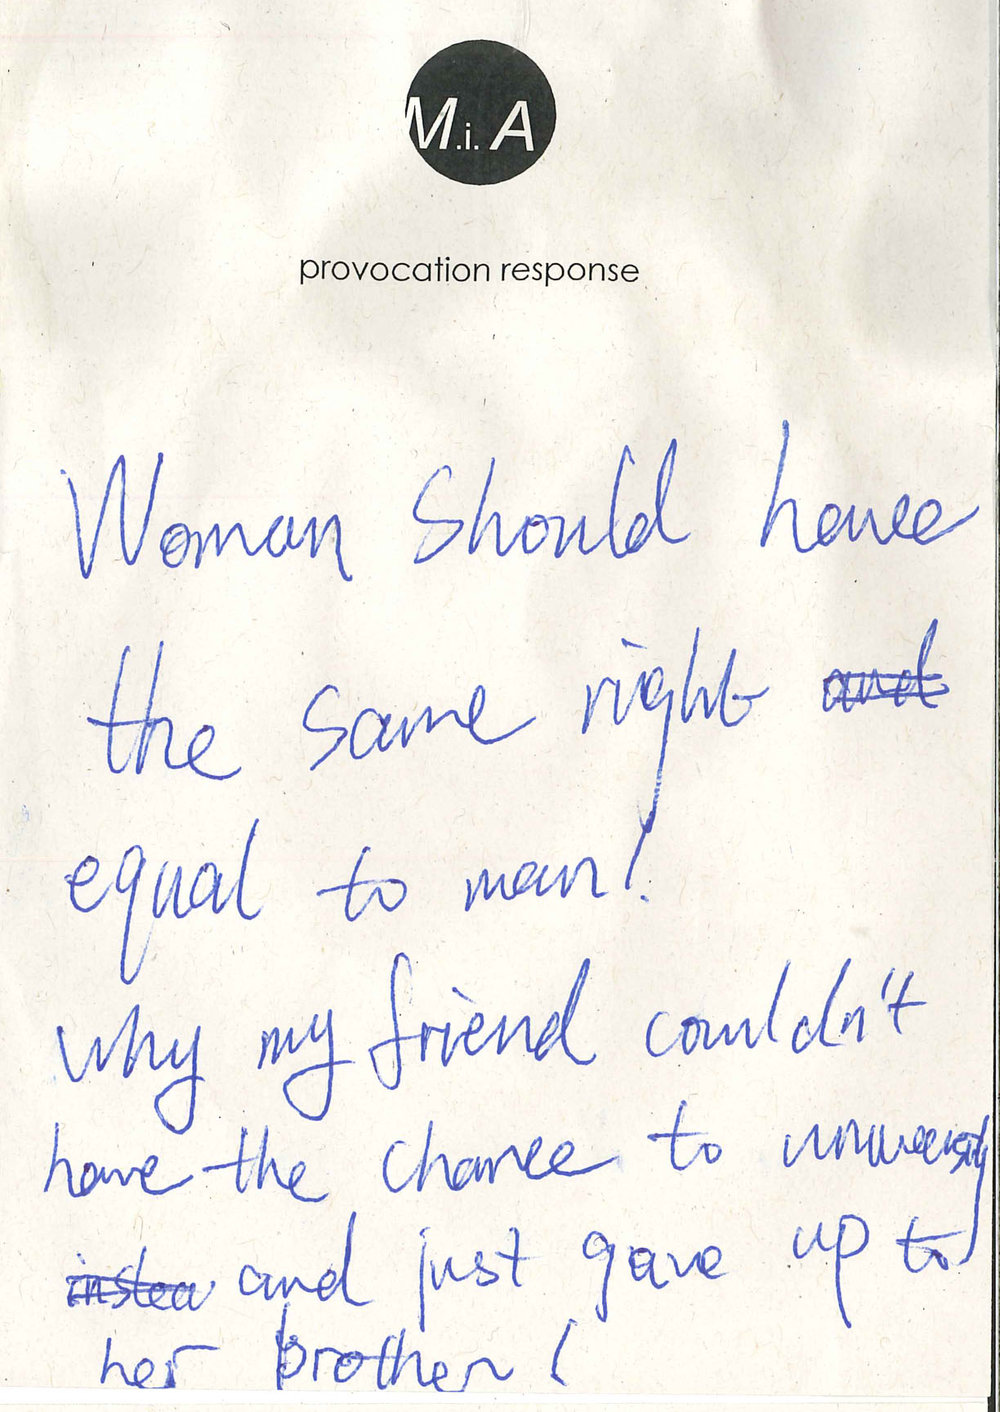 M.i.A
provocation response
Woman Should have
the same right and
equal to man!
why my friend couldn't
have the chance to university
instea and just gave up to
her brother!